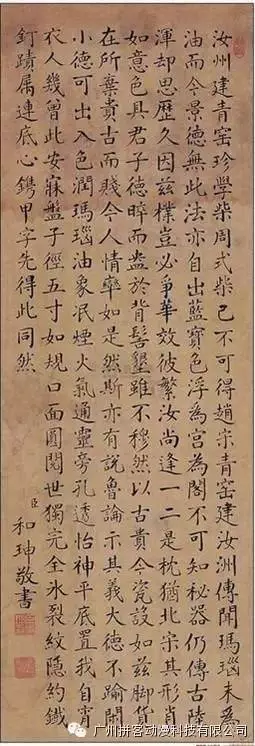 汝州建青窑珍學柴周式柴已不可得趙宋青窑建汝州傳聞瑪瑙末為
油而今景德無此法亦自出藍寶色浮為宫為閣不可知秘器仍傳古陸
渾却思歷久因茲樸豈必爭華效彼繁汝尚逢一二是枕猶北宗其形肖
如意色具君子德晬而盎於背髻墾雖不穆然以古貴今瓷設如茲脚貨
在所棄貴古而賤今人情率如是然斯亦有說魯論示其義大德不踰閑
小德可出入色潤瑪瑙油象泯煙火氣通靈旁孔透怡神平底置我自宵
衣人幾曾此安寐盤子徑五寸如規口面圓閱世獨完全冰裂紋隱約鐵
釘蹟屬連底心鐫甲字先得此同然
臣和珅敬書
广州拼客动漫科技有限公司